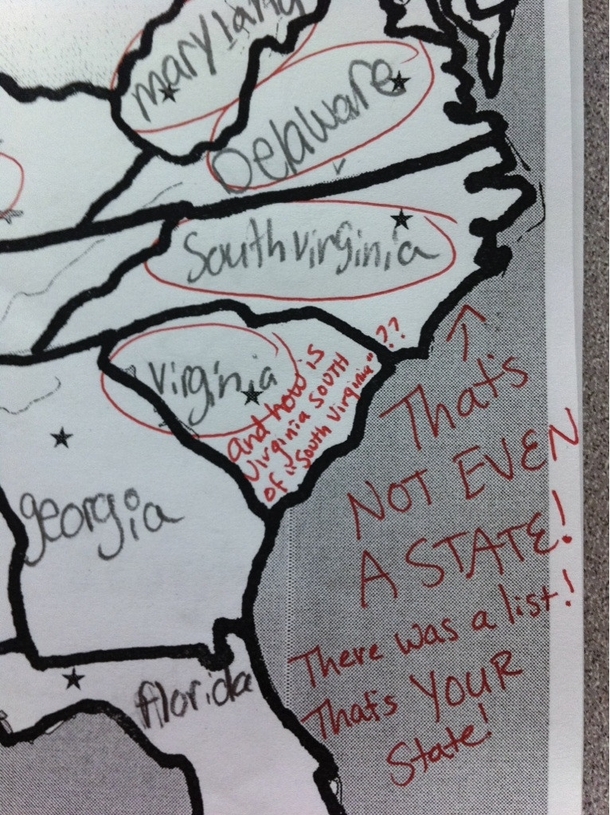 maryland
Delaware
South virginia
virginia
and how is
Virginia SOUTH
of "South Virginia"??
That's
NOT EVEN
A STATE!
There was a list!
That's YOUR
State!
georgia
florida